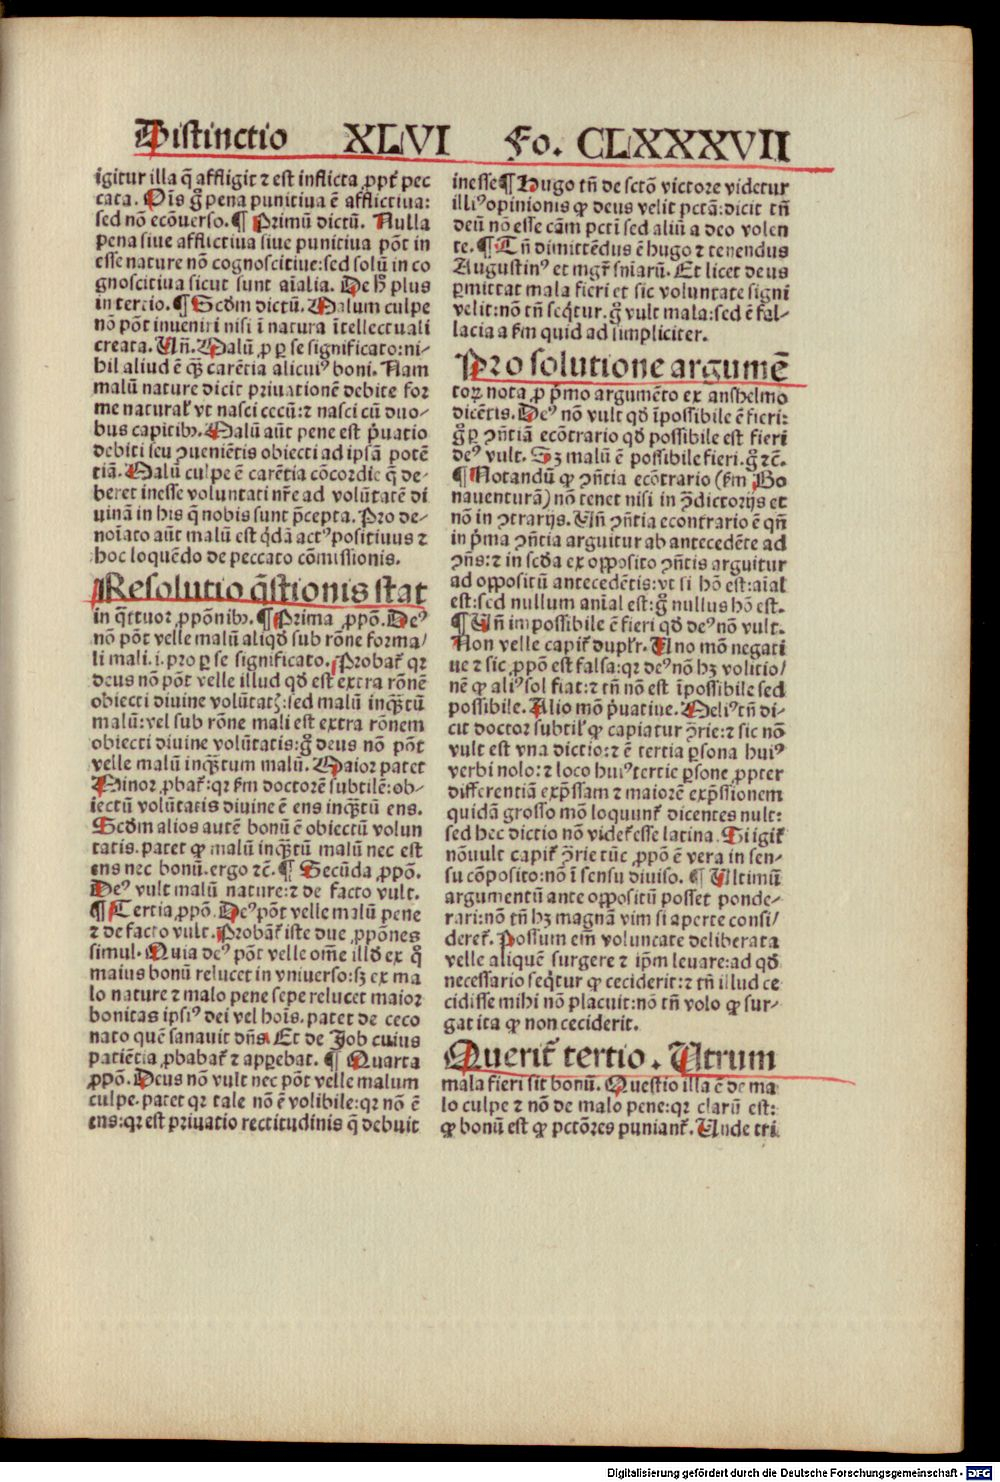 Distinctio XLVI Fo. CLXXXVII
igitur illa q̄ affligit ⁊ est inflicta ꝓpt̄ pec
cata. Oīs g̊ pena punitiua ē afflictiua:
sed nō ecōuerso. ¶ Primū dictū. Nulla
pena siue afflictiua siue punitiua pōt in
esse nature nō cognoscitiue: sed solū in co
gnoscitiua sicut sunt aīalia. De h̄ plus
in tertio. ¶ Scd̄m dictū. Malum culpe
nō pōt inueniri nisi ī natura ītellectuali
creata. Vn̄. Malū ꝓ ꝑ se significato: ni-
hil aliud ē qꝫ carētia alicuiꝰ boni. Nam
malū nature dicit priuationē debite for
me natural̄ vt nasci cecū: ⁊ nasci cū duo-
bus capitibꝫ. Malū aūt pene est p̄uatio
debiti seu ꝯueniētis obiecti ad ipsā potē
tiā. Malū culpe ē carētia cōcordie q̄ de-
beret inesse voluntati nr̄e ad volūtatē di
uinā in his q̄ nobis sunt p̄cepta. Pro de-
noīato aūt malū est qd̄ā actꝰ positiuus ⁊
hoc loquēdo de peccato cōmissionis.
Resolutio q̄stionis stat
in q̄ttuor ꝓpōnibꝫ. ¶ Prima ꝓpō. Deꝰ
nō pōt velle malū aliqd̄ sub rōne forma/
li mali. i. pro ꝑ se significato. Probat̄ qꝛ
deus nō pōt velle illud qd̄ est extra rōnē
obiecti diuine volūtatꝭ: sed malū inqꝫtū
malū: vel sub rōne mali est extra rōnem
obiecti diuine volūtatis: g̊ deus nō pōt
velle malū inqꝫtum malū. Maior patet
Minor ꝓbat̄: qꝛ ẜm doctorē subtilē: ob-
iectū volūtatis diuine ē ens inqꝫtū ens.
Scd̄m alios autē bonū ē obiectū volun
tatis. patet ꝙ malū inqꝫtū malū nec est
ens nec bonū. ergo ⁊c̄. ¶ Secūda ꝓpō.
Deꝰ vult malū nature: ⁊ de facto vult.
¶ Tertia ꝓpō. Deꝰ pōt velle malū pene
⁊ de facto vult. Probāt̄ iste due ꝓpōnes
simul. Quia deꝰ pōt velle om̄e illd̄ ex q̊
maius bonū relucet in vniuerso: sꝫ ex ma
lo nature ⁊ malo pene sepe relucet maior
bonitas ipsiꝰ dei vel hoīs. patet de ceco
nato quē sanauit dn̄s. Et de Job cuius
patiētia ꝓbabat̄ ⁊ apꝑebat. ¶ Quarta
ꝓpō. Deus nō vult nec pōt velle malum
culpe. patet qꝛ tale nō ē volibile: qꝛ nō ē
ens: qꝛ est priuatio rectitudinis q̄ debuit
inesse ¶ Hugo tn̄ de sctō victore videtur
illiꝰ opinionis ꝙ deus velit pctā: dicit tn̄
deū nō esse cām pctī sed aliū a deo volen
te. ¶ Tn̄ dimittēdus ē hugo ⁊ tenendus
Augustinꝰ et mgr̄ sniarū. Et licet deus
ꝑmittat mala fieri et sic voluntate signi
velit: nō tn̄ seqͥtur. g̊ vult mala: sed ē fal-
lacia a ẜm quid ad simpliciter.
Pro solutione argumē
toꝝ nota ꝓ p̄mo argumēto ex anshelmo
dicētis. Deꝰ nō vult qd̄ īpossibile ē fieri:
g̊ ꝑ ꝯn̄tiā ecōtrario qd̄ possibile est fieri
deꝰ vult. Sꝫ malū ē possibile fieri. g̊ ⁊c̄.
¶ Notandū ꝙ ꝯn̄tia ecōtrario (ẜm Bo
nauenturā) nō tenet nisi in ꝯ̄dictorijs et
nō in ꝯtrarijs. Vn̄ ꝯn̄tia econtrario ē qn̄
in p̄ma ꝯn̄tia arguitur ab antecedēte ad
ꝯn̄s: ⁊ in scd̄a ex opposito ꝯn̄tis arguitur
ad oppositū antecedētis: vt si hō est: aīal
est: sed nullum anīal est: g̊ nullus hō est.
¶ Vn̄ impossibile ē fieri qd̄ deꝰ nō vult.
Non velle capit̄ duplr̄. Vno mō negati
ue ⁊ sic ꝓpō est falsa: qꝛ deꝰ nō hꝫ volitio/
nē ꝙ aliꝰ sol fiat: ⁊ tn̄ nō est īpossibile sed
possibile. Alio mō p̄uatiue. Meliꝰ tn̄ di-
cit doctor subtil̄ ꝙ capiatur ꝯ̄rie: ⁊ sic nō
vult est vna dictio: ⁊ ē tertia ꝑsona huiꝰ
verbi nolo: ⁊ loco huiꝰ tertie ꝑsone ꝓpter
differentiā exp̄ssam ⁊ maiorē exp̄ssionem
quidā grosso mō loquunt̄ dicentes nult:
sed hec dictio nō videt̄ esse latina. Si igit̄
nōvult capit̄ ꝯ̄rie tūc ꝓpō ē vera in sen-
su cōposito: nō ī sensu diuiso. ¶ Vltimū
argumentū ante oppositū posset ponde-
rari: nō tn̄ hꝫ magnā vim si aperte consi/
deret̄. Possum eīm voluntate deliberata
velle aliquē surgere ⁊ ip̄m leuare: ad qd̄
necessario seqͥtur ꝙ ceciderit: ⁊ tn̄ illud ce
cidisse mihi nō placuit: nō tn̄ volo ꝙ sur-
gat ita ꝙ non ceciderit.
Querit̄ tertio. Vtrum
mala fieri sit bonū. Questio illa ē de ma
lo culpe ⁊ nō de malo pene: qꝛ clarū est:
ꝙ bonū est ꝙ pctōres puniant̄. Vnde tri
Digitalisierung gefördert durch die Deutsche Forschungsgemeinschaft - DFG